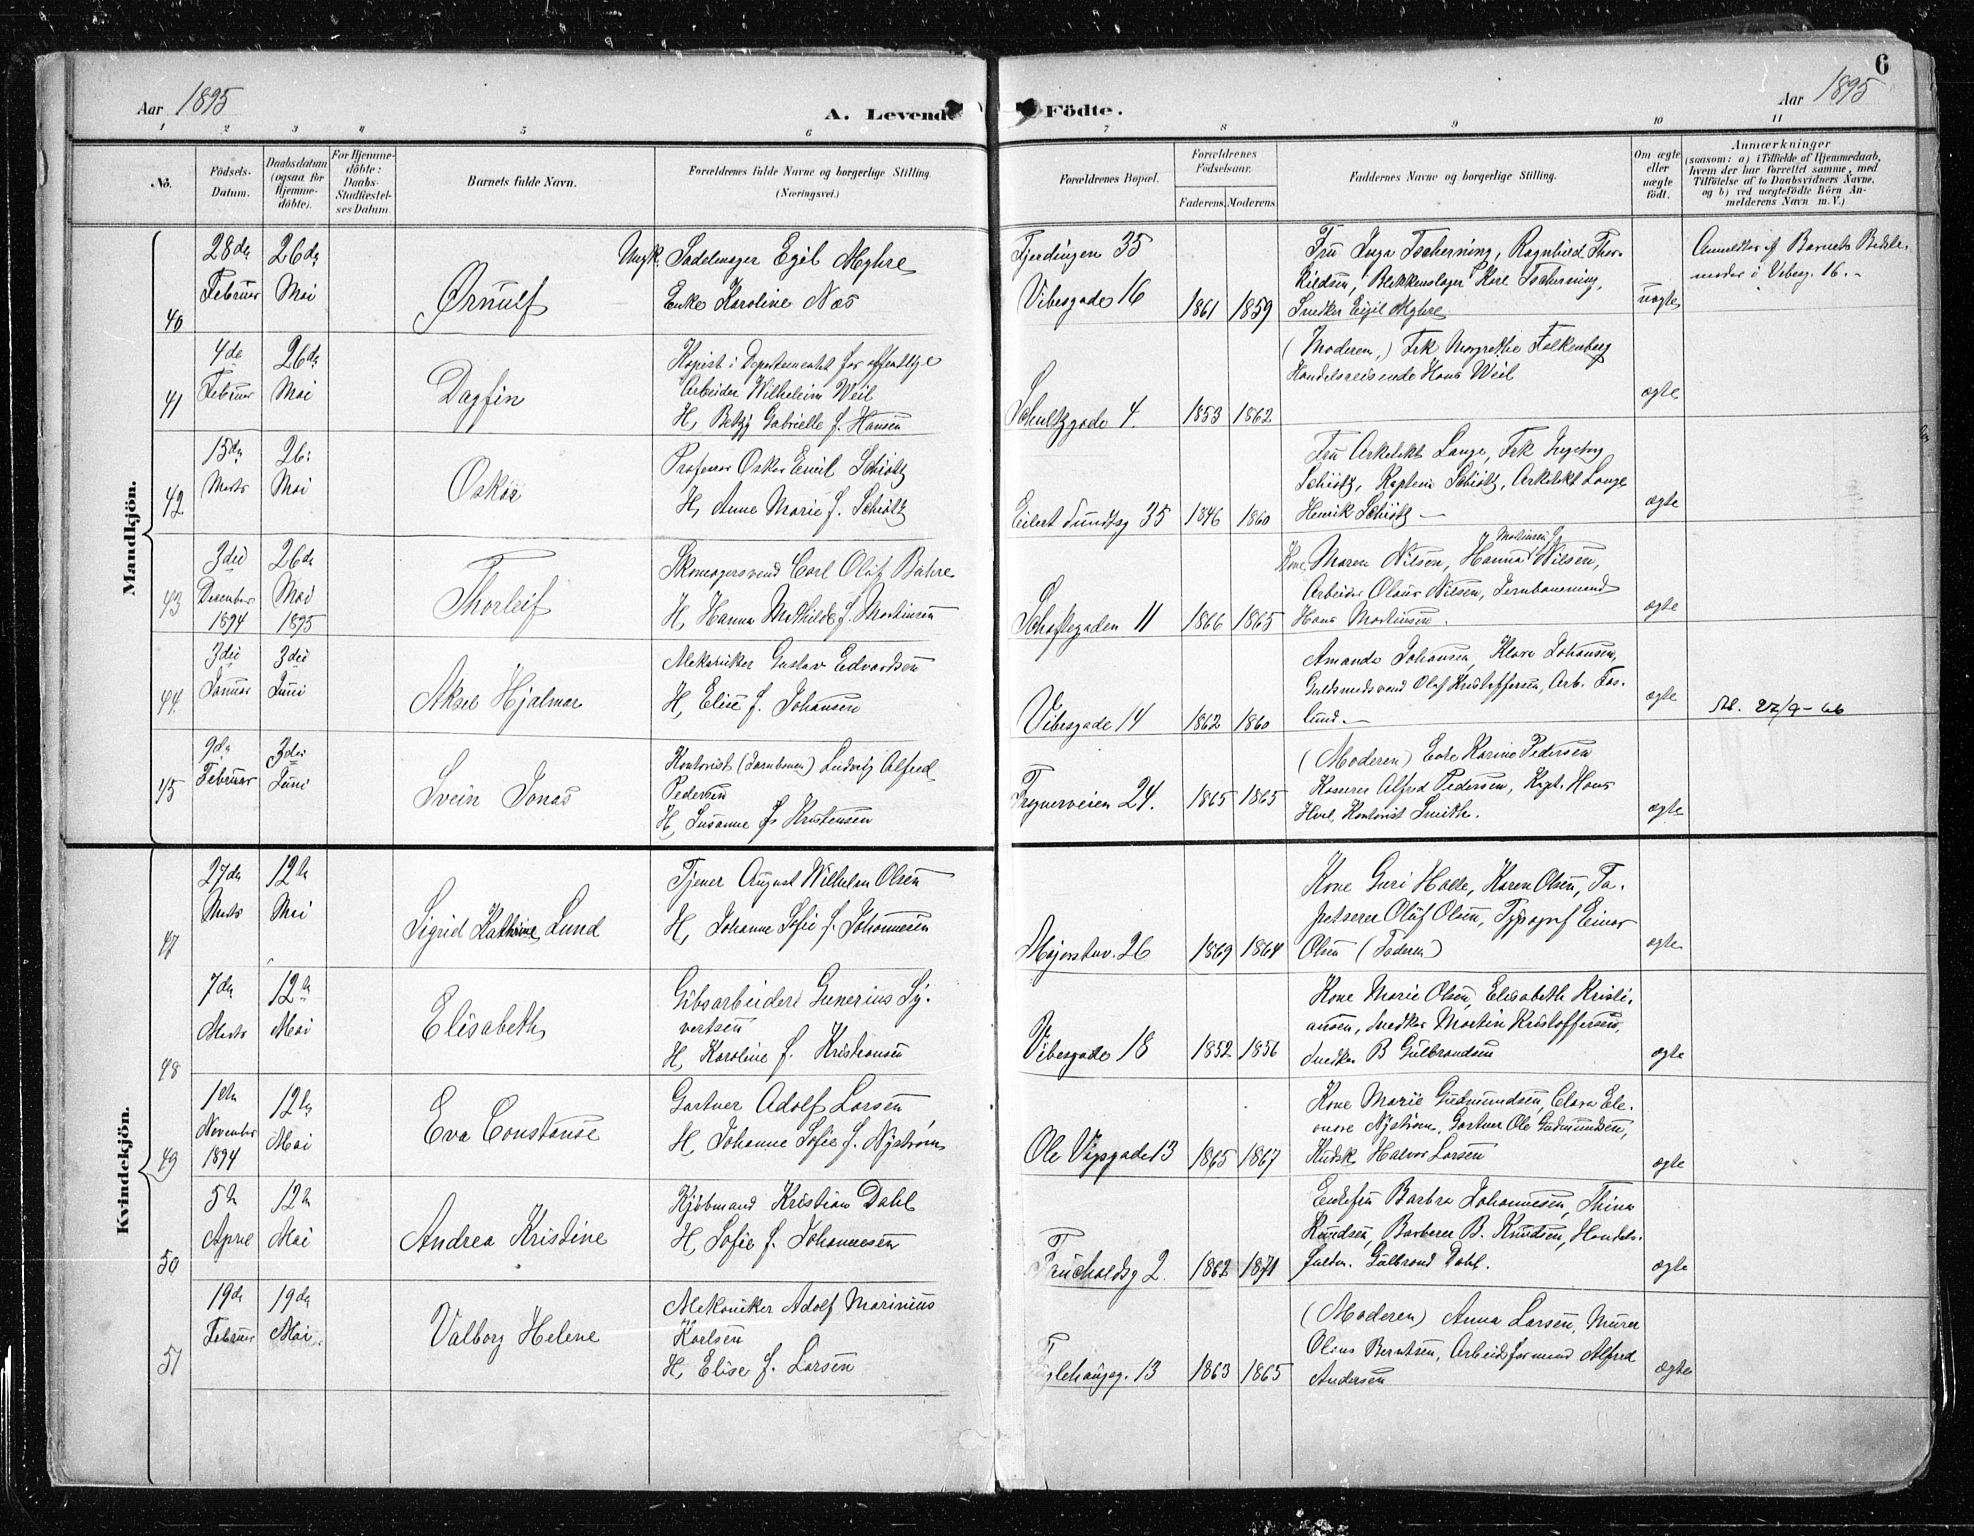 6
Aar 1895
A. Levende Födte.
Aar 1895
1 2 3 4 5 6 7 8 9 10 11
No.
Födsels-Datum.
Daabsdatum (ogsaa for Hjemme-döbte).
For Hjemme-döbte: Daabs-Stadfæstel-ses Datum.
Barnets fulde Navn.
Forældrenes fulde Navne og borgerlige Stilling.
(Næringsvei.)
Forældrenes Bopæl.
Forældrenes Födselsaar.
Faderens. Moderens.
Faddernes Navne og borgerlige Stilling.
Om ægte eller uægte födt.
Anmærkninger
(saasom: a) i Tilfælde af Hjemmedaab,
hvem der har forrettet samme, med
Tilföielse af to Daabsvidners Navne.
og b) ved uægtefödte Börn An-
melderens Navn m. V.)
Mandkjön.
40
28de Februar
26de Mai
Ørnulf
Ungk. Sadelmager Egil Myhre
Enke Karoline Næs
Fjerdingen 35
Vibesgade 16
1861 1859
Fru Inga Tscherning, Ragnhild Thor-
kildsen, Blikkenslager Karl Tscherning,
Snedker Eigil Myhre
uægte
Anmeldter af Barnets Bedste-
moder i Vibesg. 16. -
41
4de Februar
26de Mai
Dagfin
Kopist i Departementet for offentlige
Arbeider Wilhelm Weil
H, Betzy Gabrielle f. Hansen
Schultzgade 4.
1853 1862
(Moderen,) Frk Margrethe Falkenberg
Handelsreisende Hans Weil
ægte
42
15de Marts
26: Mai
Oskar
Professor Oskar Emil Schiøtz
H, Anne Marie f. Schiøtz
Eilert Sundtsg 35
1846 1860
Fru Arkitekt Lange, Frk Ingeborg
Schiøtz, Kaptein Schiøtz, Arkitekt Lange
Henrik Schiøtz —
ægte
43
3die December 1894
26de Mai 1895
Thorleif
Skomagersvend Carl Oluf Bahre
H, Hanna Mathilde f. Martinsen
Schaftegaden 11
1866 1865
Martinsen
Kone Maren Nilsen, Hanna Nilsen,
Arbeider Olaus Nilsen, Jernbanemand
Hans Martinsen.
ægte
44
3die Januar
3die Juni
Aksel Hjalmar
Mekaniker Gustav Edvardsen
H, Elise f. Johansen
Vibesgade 14
1862 1860
Amanda Johansen, Klara Johansen,
Guldsmedsvend Olaf Kristoffersen, Arb. Fos-
lund. —
ægte
27/9-66
45
9de Februar
3die Juni
Svein Jonas
Kontorist (Jernbanen) Ludvig Alfred
Pedersen
H, Susanne f. Kristensen
Frognerveien 24.
1865 1865
(Moderen) Enke Karine Pedersen
Kasserer Alfred Pedersen, Kapt. Hans
Hval, Kontorist Smith.
ægte
Kvindekjön.
47
27de Marts
12te Mai
Sigrid Kathrine Lund
Tjener August Wilhelm Olsen
H, Johanne Sofie f. Johannesen
Majorstuv. 26
1869 1864
Kone Guri Holte, Karen Olsen, Ta-
petserer Oluf Olsen, Typograf Einar
Olsen (Faderen)
ægte
48
7de Marts
12te Mai
Elisabeth
Gibsarbeider Gunerius Sy-
vertsen
H, Karoline f. Kristiansen
Vibesgade 18
1852 1856
Kone Marie Olsen, Elisabeth Kristi-
ansen, Snedker Martin Kristoffersen,
Snedker B Gulbrandsen
ægte
49
1ste November 1894
12te Mai
Eva Constanse
Gartner Adolf Larsen
H, Johanne Sofie f. Nystrøm
Ole Vigsgade 13
1865 1867
Kone Marie Gudmundsen, Clara Ele-
onore Nystrøm, Gartner Ole Gudmundsen,
Kudsk Halvor Larsen
ægte
50
5te April
12te Mai
Andrea Kristine
Kjöbmand Kristian Dahl
H, Sofie f. Johannesen
Trudvaldsg 2.
1862 1871
Enkefru Barbra Johannesen, Thina
Knudsen, Barberer B. Knudsen, Handels-
fuldm. Gulbrand Dahl.
ægte
51
19de Februar
19de Mai
Valborg Helene
Mekaniker Adolf Marinius
Karlsen
H, Elise f. Larsen
Fuglehaugsg. 13
1863 1865
(Moderen) Anna Larsen, Murer
Olaus Berntsen, Arbeidsformand Alfred
Andersen
ægte